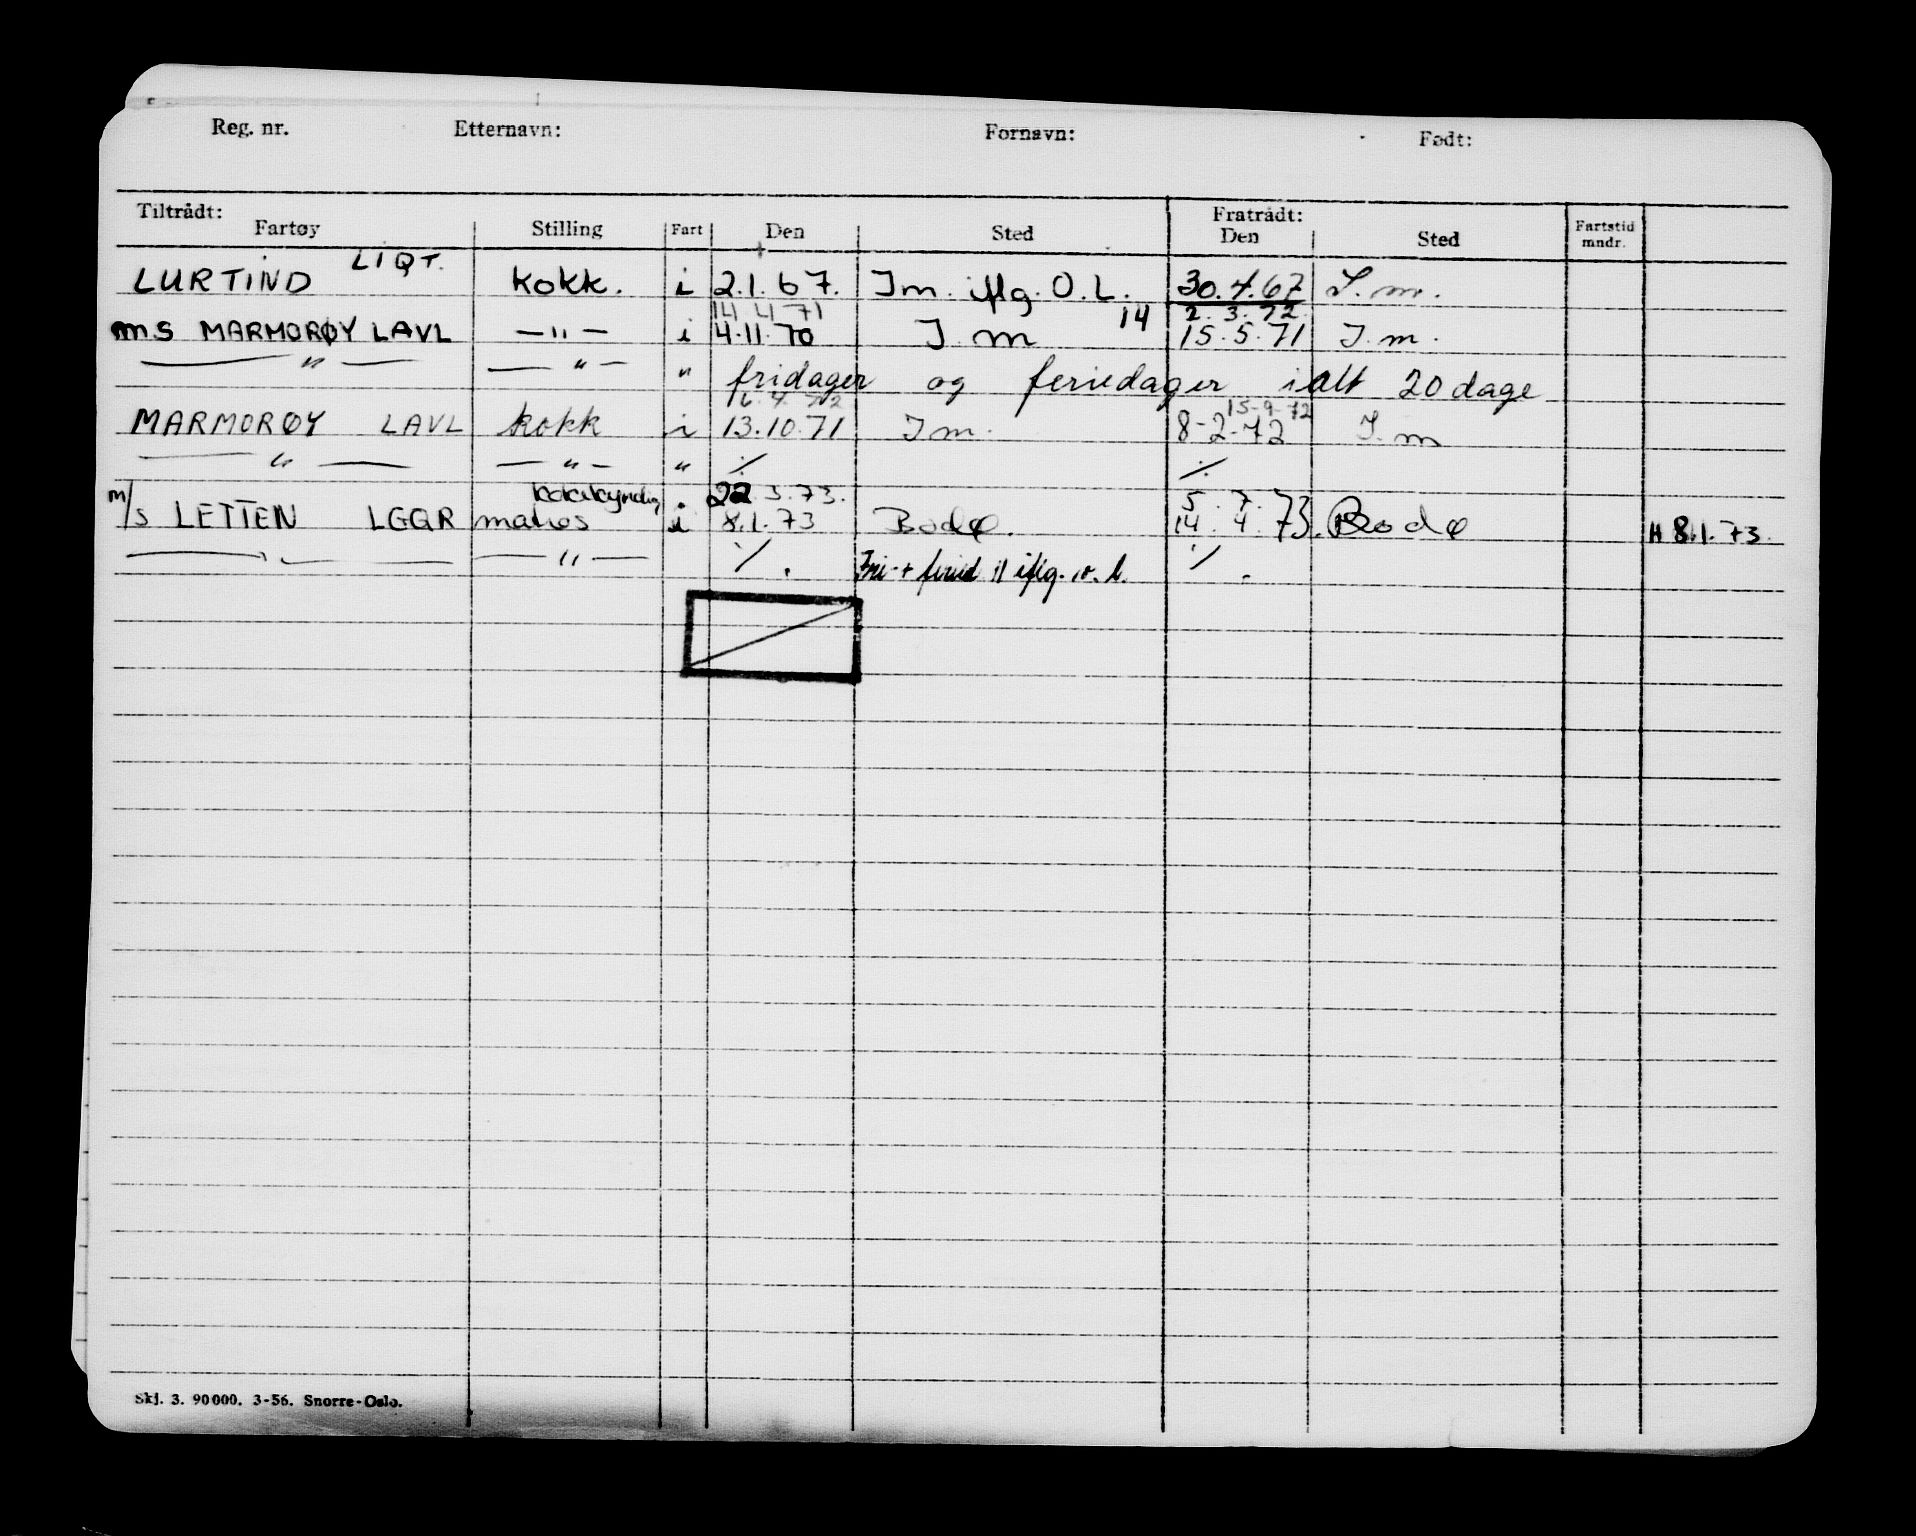 Reg. nr. Etternavn: Fornavn: Født:
Tiltrådt: Fratrådt:
Fartøy Stilling Fart Den Sted Den Sted Fartstid mndr.
LURTIND LIQT. kokk. i 2.1.67. Im. iflg. O.L. 30.4.67 I.m.
14 4 71 14 2. 3. 72
ms MARMORØY LAVL —"— i 4.11.70 I m 15.5.71 I.m.
—"— —"— " fridager og feriedager ialt 20 dage
4. 72 15-9-72
MARMORØY LAVL kokk i 13.10.71 Im. 8-2-72 I.m
—"— —"— " ٪ ٪
kokkyndig 22 3.73. 5 . 7. 73
m/s LETTEN LGQR matros i 8.1.73 Bodø. 14. 4. 73. Bodø H 8.1.73.
—"— —"— ٪. Fri- + feried iflg. o. l. ٪.
Skj. 3. 90000. 3-56. Snorre-Oslo.